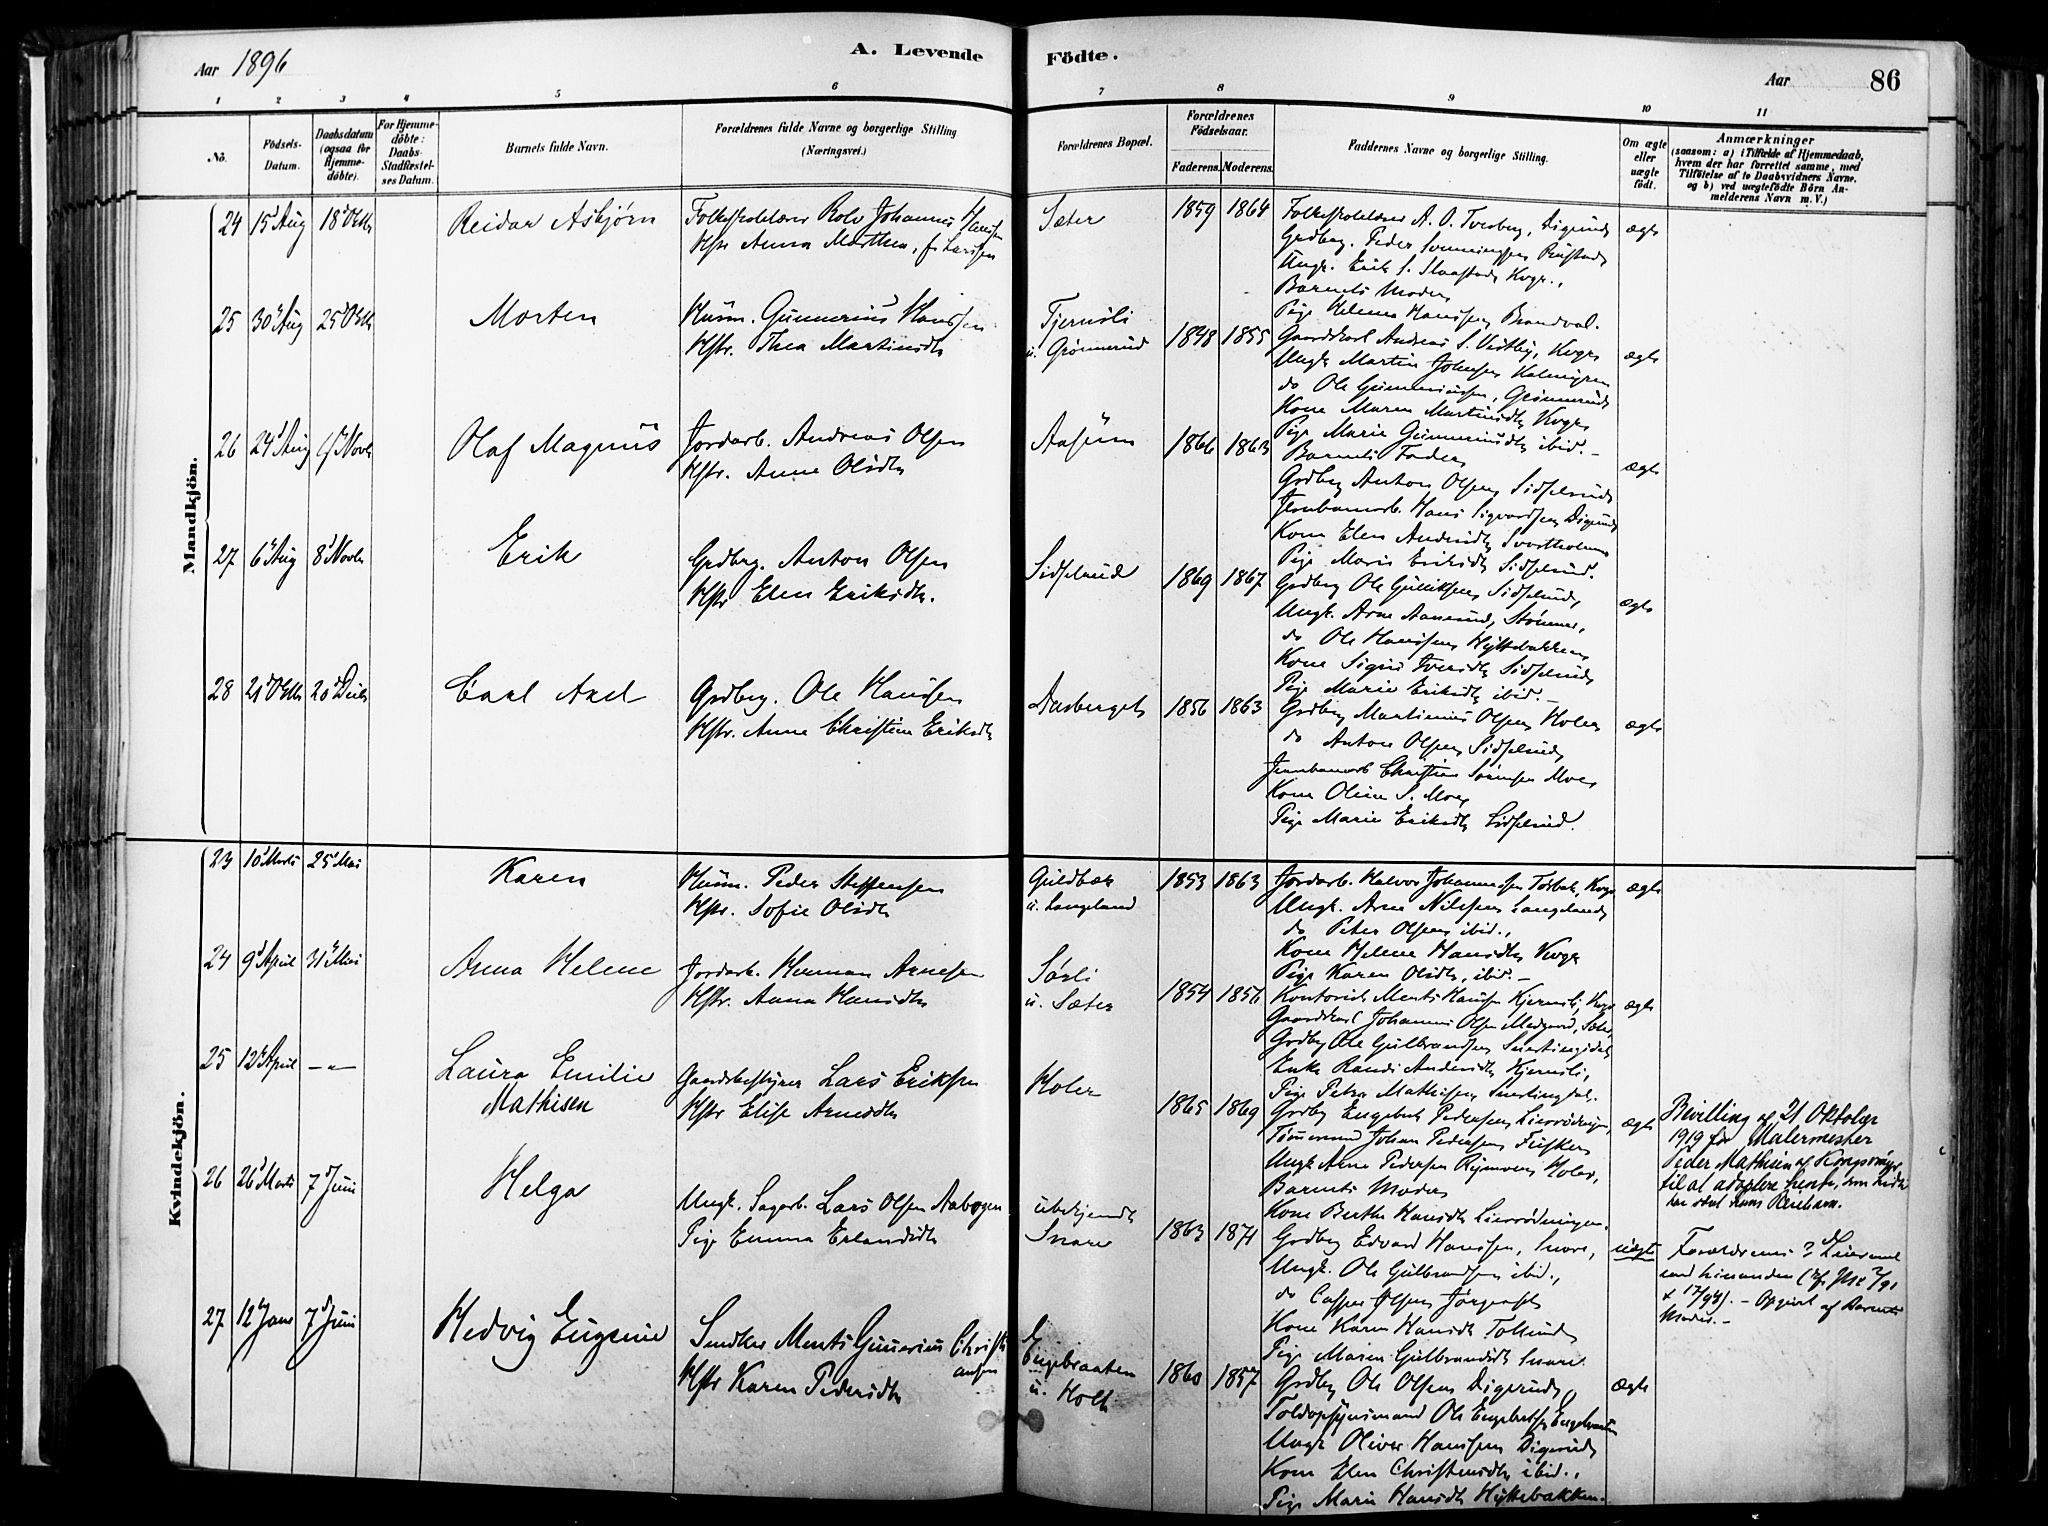 Aar 1896
A. Levende
Födte.
Aar
86
1 2 3 4 5 6 7 8 9 10 11
No.
Födsels-
Datum.
Daabsdatum
(ogsaa for
Hjemme-
döbte).
For Hjemme-
döbte:
Daabs-
Stadfæstel-
ses Datum.
Barnets fulde Navn.
Forældrenes fulde Navne og borgerlige Stilling
(Næringsvei.)
Forældrenes Bopæl.
Forældrenes
Födselsaar.
Faderens. Moderens.
Faddernes Navne og borgerlige Stilling.
Om ægte
eller
uægte
födt.
Anmærkninger
(saasom: a) i Tilfælde af Hjemmedaab,
hvem der har forrettet samme, med
Tilföielse af to Daabsvidners Navne.
og b) ved uægtefödte Börn An-
melderens Navn m. V.)
Mandkjön.
24 15 Aug 18 Oktb
Reidar Asbjørn
Folkeskolelærer Rolv Johannes Hansen
Hstr. Anna Marthea, f. Larsen
Sæter
1859 1864
Folkeskolelærer A. O. Tvesberg, Digerud
Grdbrg. Peder
Ungk. Erik S. Kvgr.,
Barnets Moder
Pige Helene Hanssen, Brandval.
ægte
25 30 Aug 25 Oktb
Morten
Husm. Gunnerius Hanssen
Hstr. Thea Martinsdtr
Tjernsli
u. Grønnerud
1848 1855
Gaardskarl Andreas S. Vestby, Kvgr
Ungk Martin Johnsen
do Ole Gunneriussen, Grønnerud
Kone Maren Martinsdtr Kvgr
Pige Marie Gunneriusdtr ibid. –
ægte
26 24 Aug 1 Novb
Olaf Magnus
Jordarb. Andreas Olsen
Hstr. Anne Olsdtr
Aasum
1866 1863
Barnets Fader
Grdbrg Anton Olsen Sidselrud
Jernbanearb. Hans Sigvardsen Digerud
Kone Elen Andersdtr Svartholmen
Pige Marie Eriksdtr Sidselrud.
ægte
27 6 Aug 8 Novb
Erik
Grdbrg. Anton Olsen
Hstr Elen Eriksdtr.
Sidselrud
1869 1867
Grdbrg Ole Gulliksen Sidselrud,
Ungk. Arne Aamerud, Stømner,
do Ole Hanssen Hyttebakken
Kone Signe Iversdtr Sidselrud
Pige Marie Eriksdtr ibid. –
ægte
28 21 Oktb 20 Decb
Carl Axel
Grdbrg. Ole Hanssen
Hstr. Anne Christine Eriksdtr
Aasberget
1856 1863
Grdbrg Martinius Olsen Holer
do Anton Olsen Sidselrud,
Jernbanearb Christian Sørensen Moe
Kone Oline S. Moe,
Pige Marie Eriksdtr Sidselrud.
ægte
Kvindekjön.
23 10 Marts 25 Mai
Karen
Husm. Peder Steffensen
Hstr. Sofie Olsdtr
Guldbæk
u. Langeland
1853 1863
Jordarb. Halvor Johannessen Kvgr
Ungk. Arne Nilssen Langeland
do Peter Olsen ibid.,
Kone Helene Hansdtr Kvgr
Pige Karen Olsdtr, ibid. –
ægte
24 9 April 31 Mai
Anna Helene
Jordarb. Herman Arnesen
Hstr. Anna Hansdtr
Sørli
u. Sæter
1854 1856
Kontorist Ments Hansen Kjernsli, Kvgr
Gaardskarl Johannes Olsen Sæter,
Grdbrg Ole Gulbrandsen Svertingsdal
Enke Randi Andersdtr Kjernsli,
Pige Petra Mathisen Svertingdal.
ægte
25 12 April – " –
Laura Emilie
Mathisen
Gaardsbestyrer Lars Eriksen
Hstr Elise Arnesdtr
Holer
1865 1869
Grdbrg Engebret Pedersen Lierrødningen,
Tømmermand Johan Pedersen
Ungk Arne Pedersen Holer,
Barnets Moder
Kone Berthe Hansdtr Lierrødningen.
ægte
Bevilling af 21 Oktober
1919 for Malermester
Peder Mathisen af Kongsvinger
til at adoptere hende, som hidtil
har været hans
26 26 Marts 7 Juni
Helga
Ungk. Sagarb. Lars Olsen Aabogen
Pige Emma Erlandsdtr
ubekjendt
Snare
1863 1871
Grdbrg Edvard Hanssen, Snare,
Ungk. Ole Gulbrandsen ibid.,
do Casper Olsen
Kone Karen Hansdtr Tollerud
Pige Maren Gulbrandsdtr Snare.
uægte
Forældrenes 2 Leiermaal
med hinanden
– Opgivet af Barnets
Moder. –
27 12 Janr 7 Juni
Hedvig Eugenie
Snedker Ments Gunerius Christi-
ansen
Hstr Karen Pedersdtr
Engebraaten
u. Holt
1860 1857
Grdbrg Ole Olsen Digerud,
Toldopsynsmand Ole Engebretsen Engebraaten
Ungk Oliver Hanssen Digerud,
Kone Elen Christensdtr ibid.,
Pige Marie Hansdtr Hyttebakken.
ægte